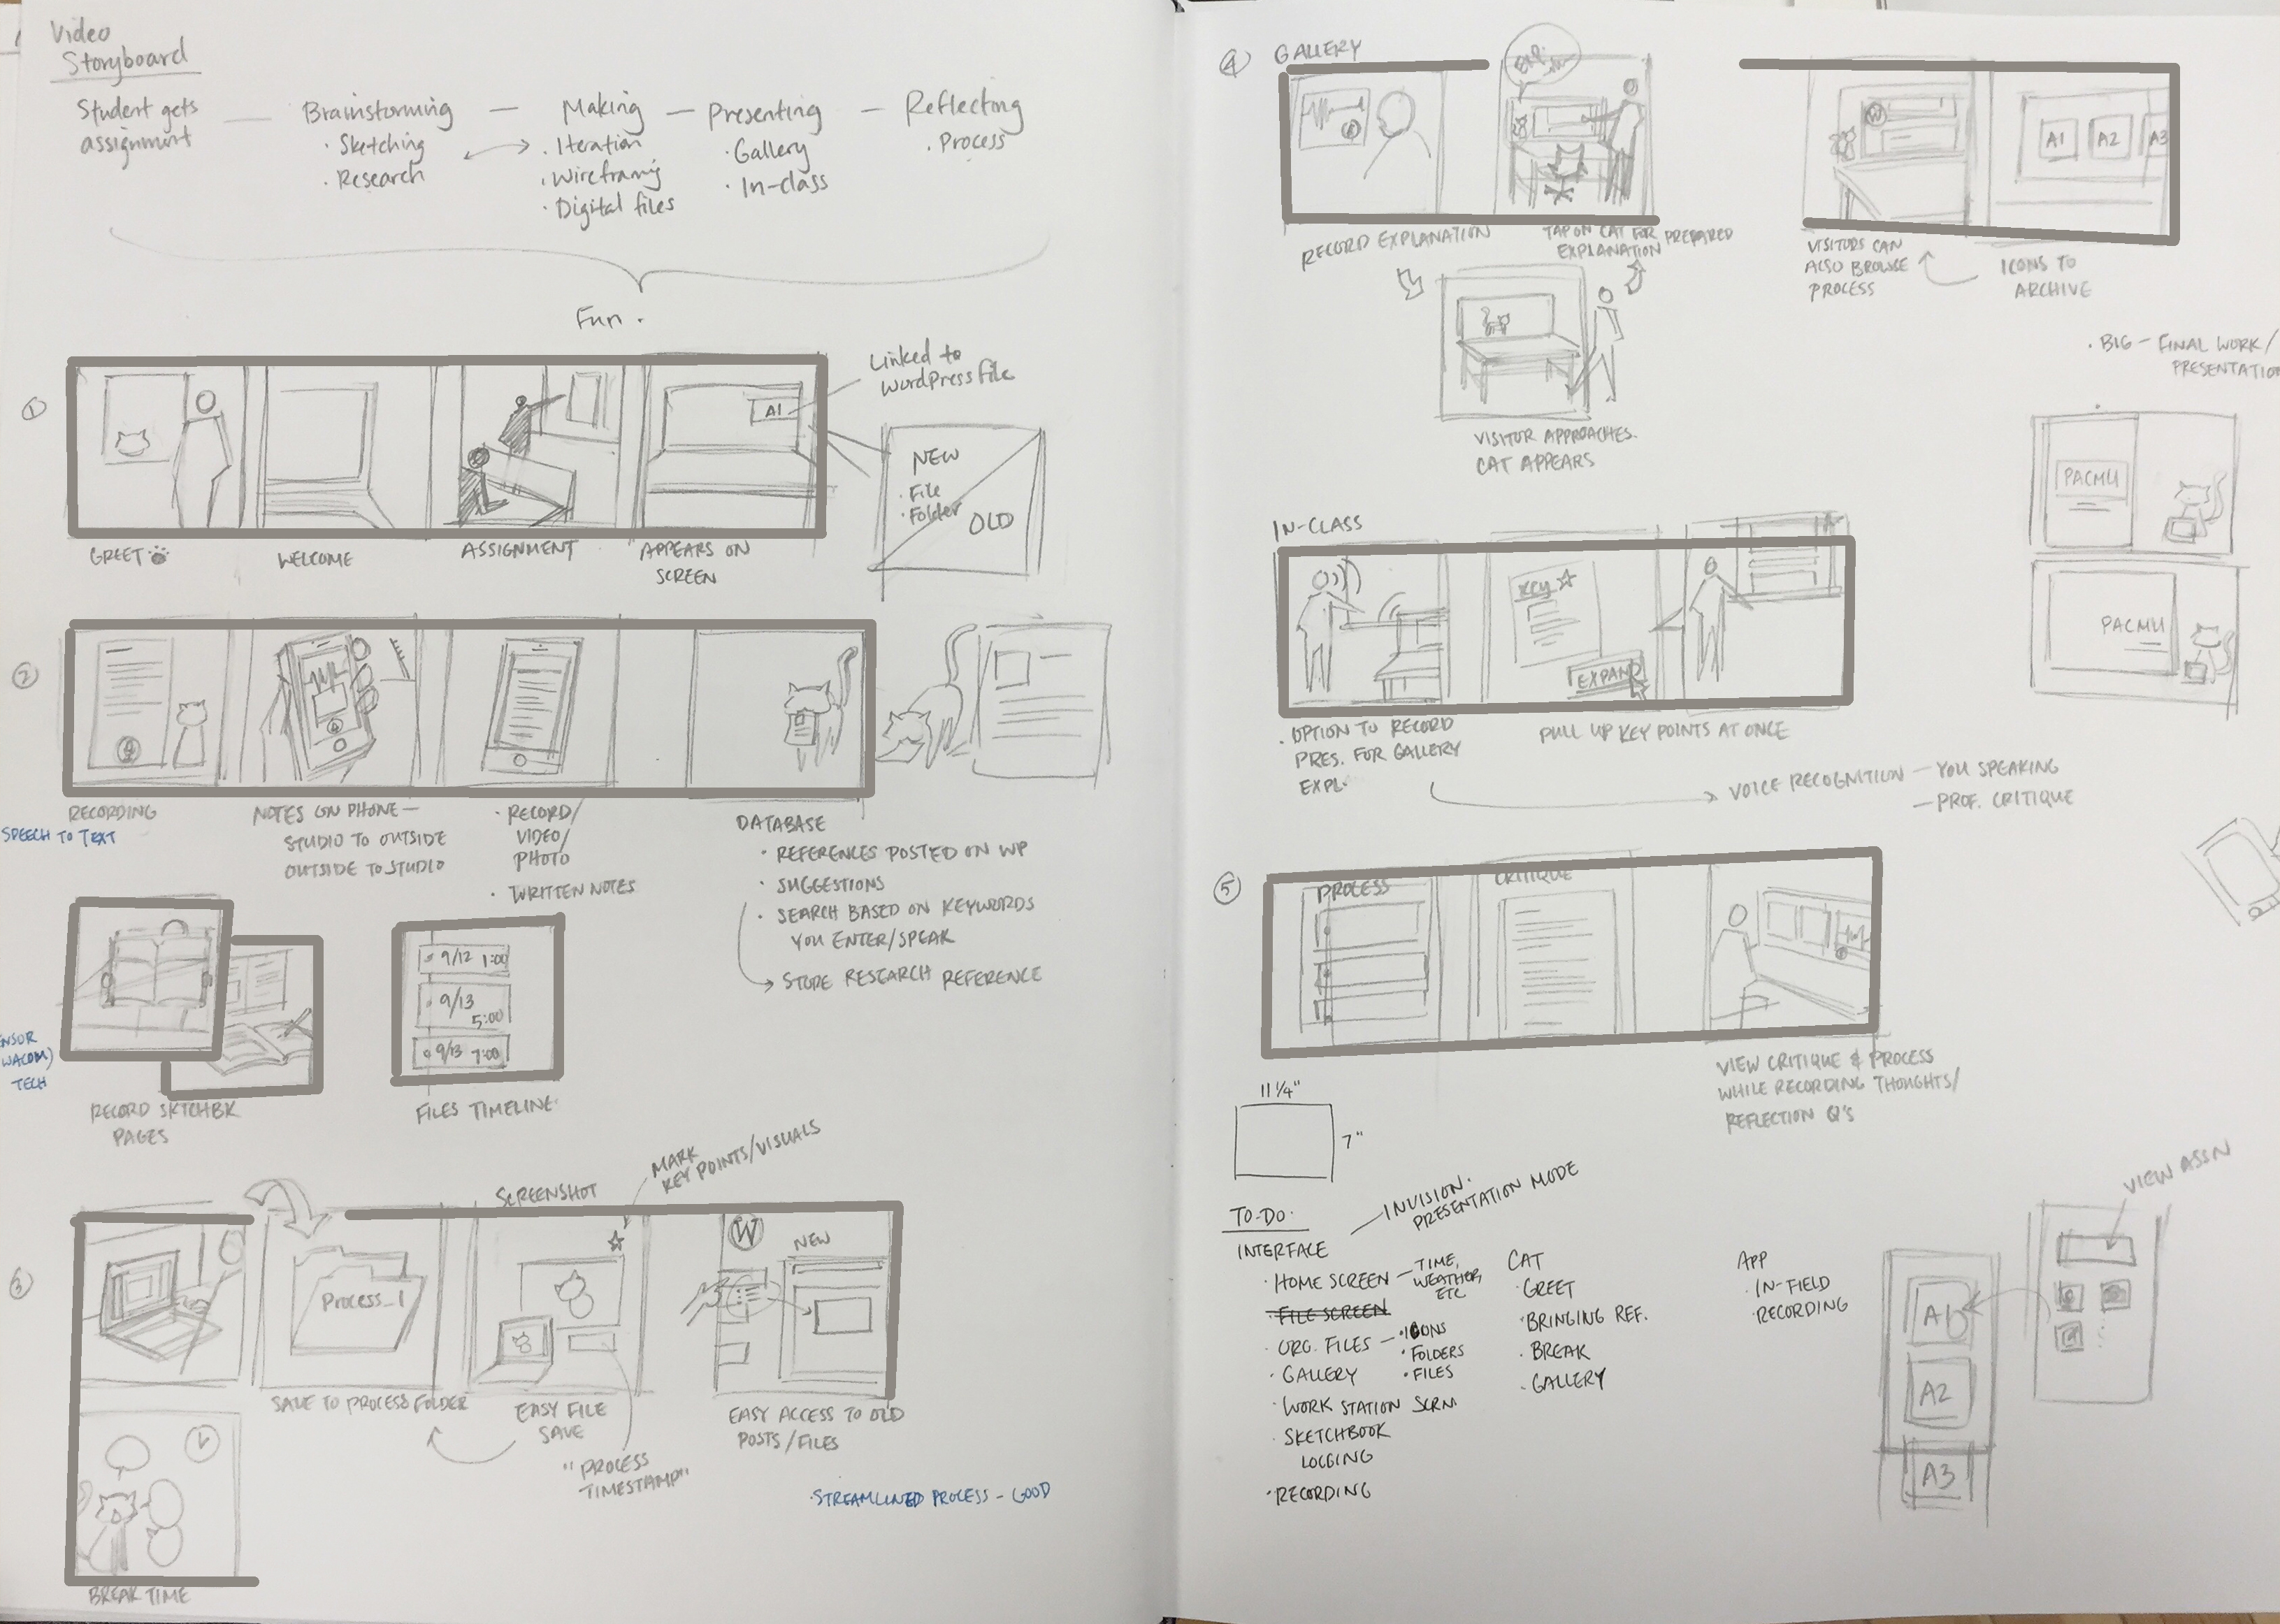 Video
Storyboard
Student gets
assignment
Brainstorming
· Sketching
· Research
Making
· Iteration
· Wireframing
· Digital files
Presenting
· Gallery
· In-class
Reflecting
· Process
Fun.
①
A1
Linked to
WordPress file
NEW
· File
· Folder
OLD
GREET
WELCOME
ASSIGNMENT
APPEARS ON
SCREEN
②
RECORDING
SPEECH TO TEXT
NOTES ON PHONE —
STUDIO TO OUTSIDE
OUTSIDE TO STUDIO
· RECORD/
VIDEO/
PHOTO
· WRITTEN NOTES
DATABASE
· REFERENCES POSTED ON WP
· SUGGESTIONS
· SEARCH BASED ON KEYWORDS
YOU ENTER/SPEAK
→ STORE RESEARCH REFERENCE
ENSOR
WACOM)
TECH
RECORD SKTCHBK
PAGES
9/12 1:00
9/13
5:00
9/13 7:00
FILES TIMELINE
MARK
KEY POINTS/VISUALS
SCREENSHOT
③
Process_1
W
NEW
SAVE TO PROCESS FOLDER
EASY FILE
SAVE
"PROCESS
TIMESTAMP"
EASY ACCESS TO OLD
POSTS/FILES
· STREAMLINED PROCESS – GOOD
BREAK TIME
④ GALLERY
EXP.
W
A1 A2 A3
RECORD EXPLANATION
TAP ON CAT FOR PREPARED
EXPLANATION
VISITORS CAN
ALSO BROWSE
PROCESS
ICONS TO
ARCHIVE
VISITOR APPROACHES.
CAT APPEARS
· BIG – FINAL WORK/
PRESENTATION
PACMU
PACMU
IN-CLASS
KEY ☆
EXPAND
· OPTION TO RECORD
PRES. FOR GALLERY
EXPL.
PULL UP KEY POINTS AT ONCE
→ VOICE RECOGNITION — YOU SPEAKING
— PROF. CRITIQUE
⑤
PROCESS
CRITIQUE
VIEW CRITIQUE & PROCESS
WHILE RECORDING THOUGHTS/
REFLECTION Q'S
11 1/4"
7"
TO-DO:
INVISION:
PRESENTATION MODE
INTERFACE
· HOME SCREEN — TIME,
WEATHER,
ETC
· FILE SCREEN
· ORG. FILES — · ICONS
· FOLDERS
· FILES
· GALLERY
· WORK STATION SCRN
· SKETCHBOOK
LOGGING
· RECORDING
CAT
· GREET
· BRINGING REF.
· BREAK
· GALLERY
APP
· IN-FIELD
RECORDING
VIEW ASSN
A1
A2
A3